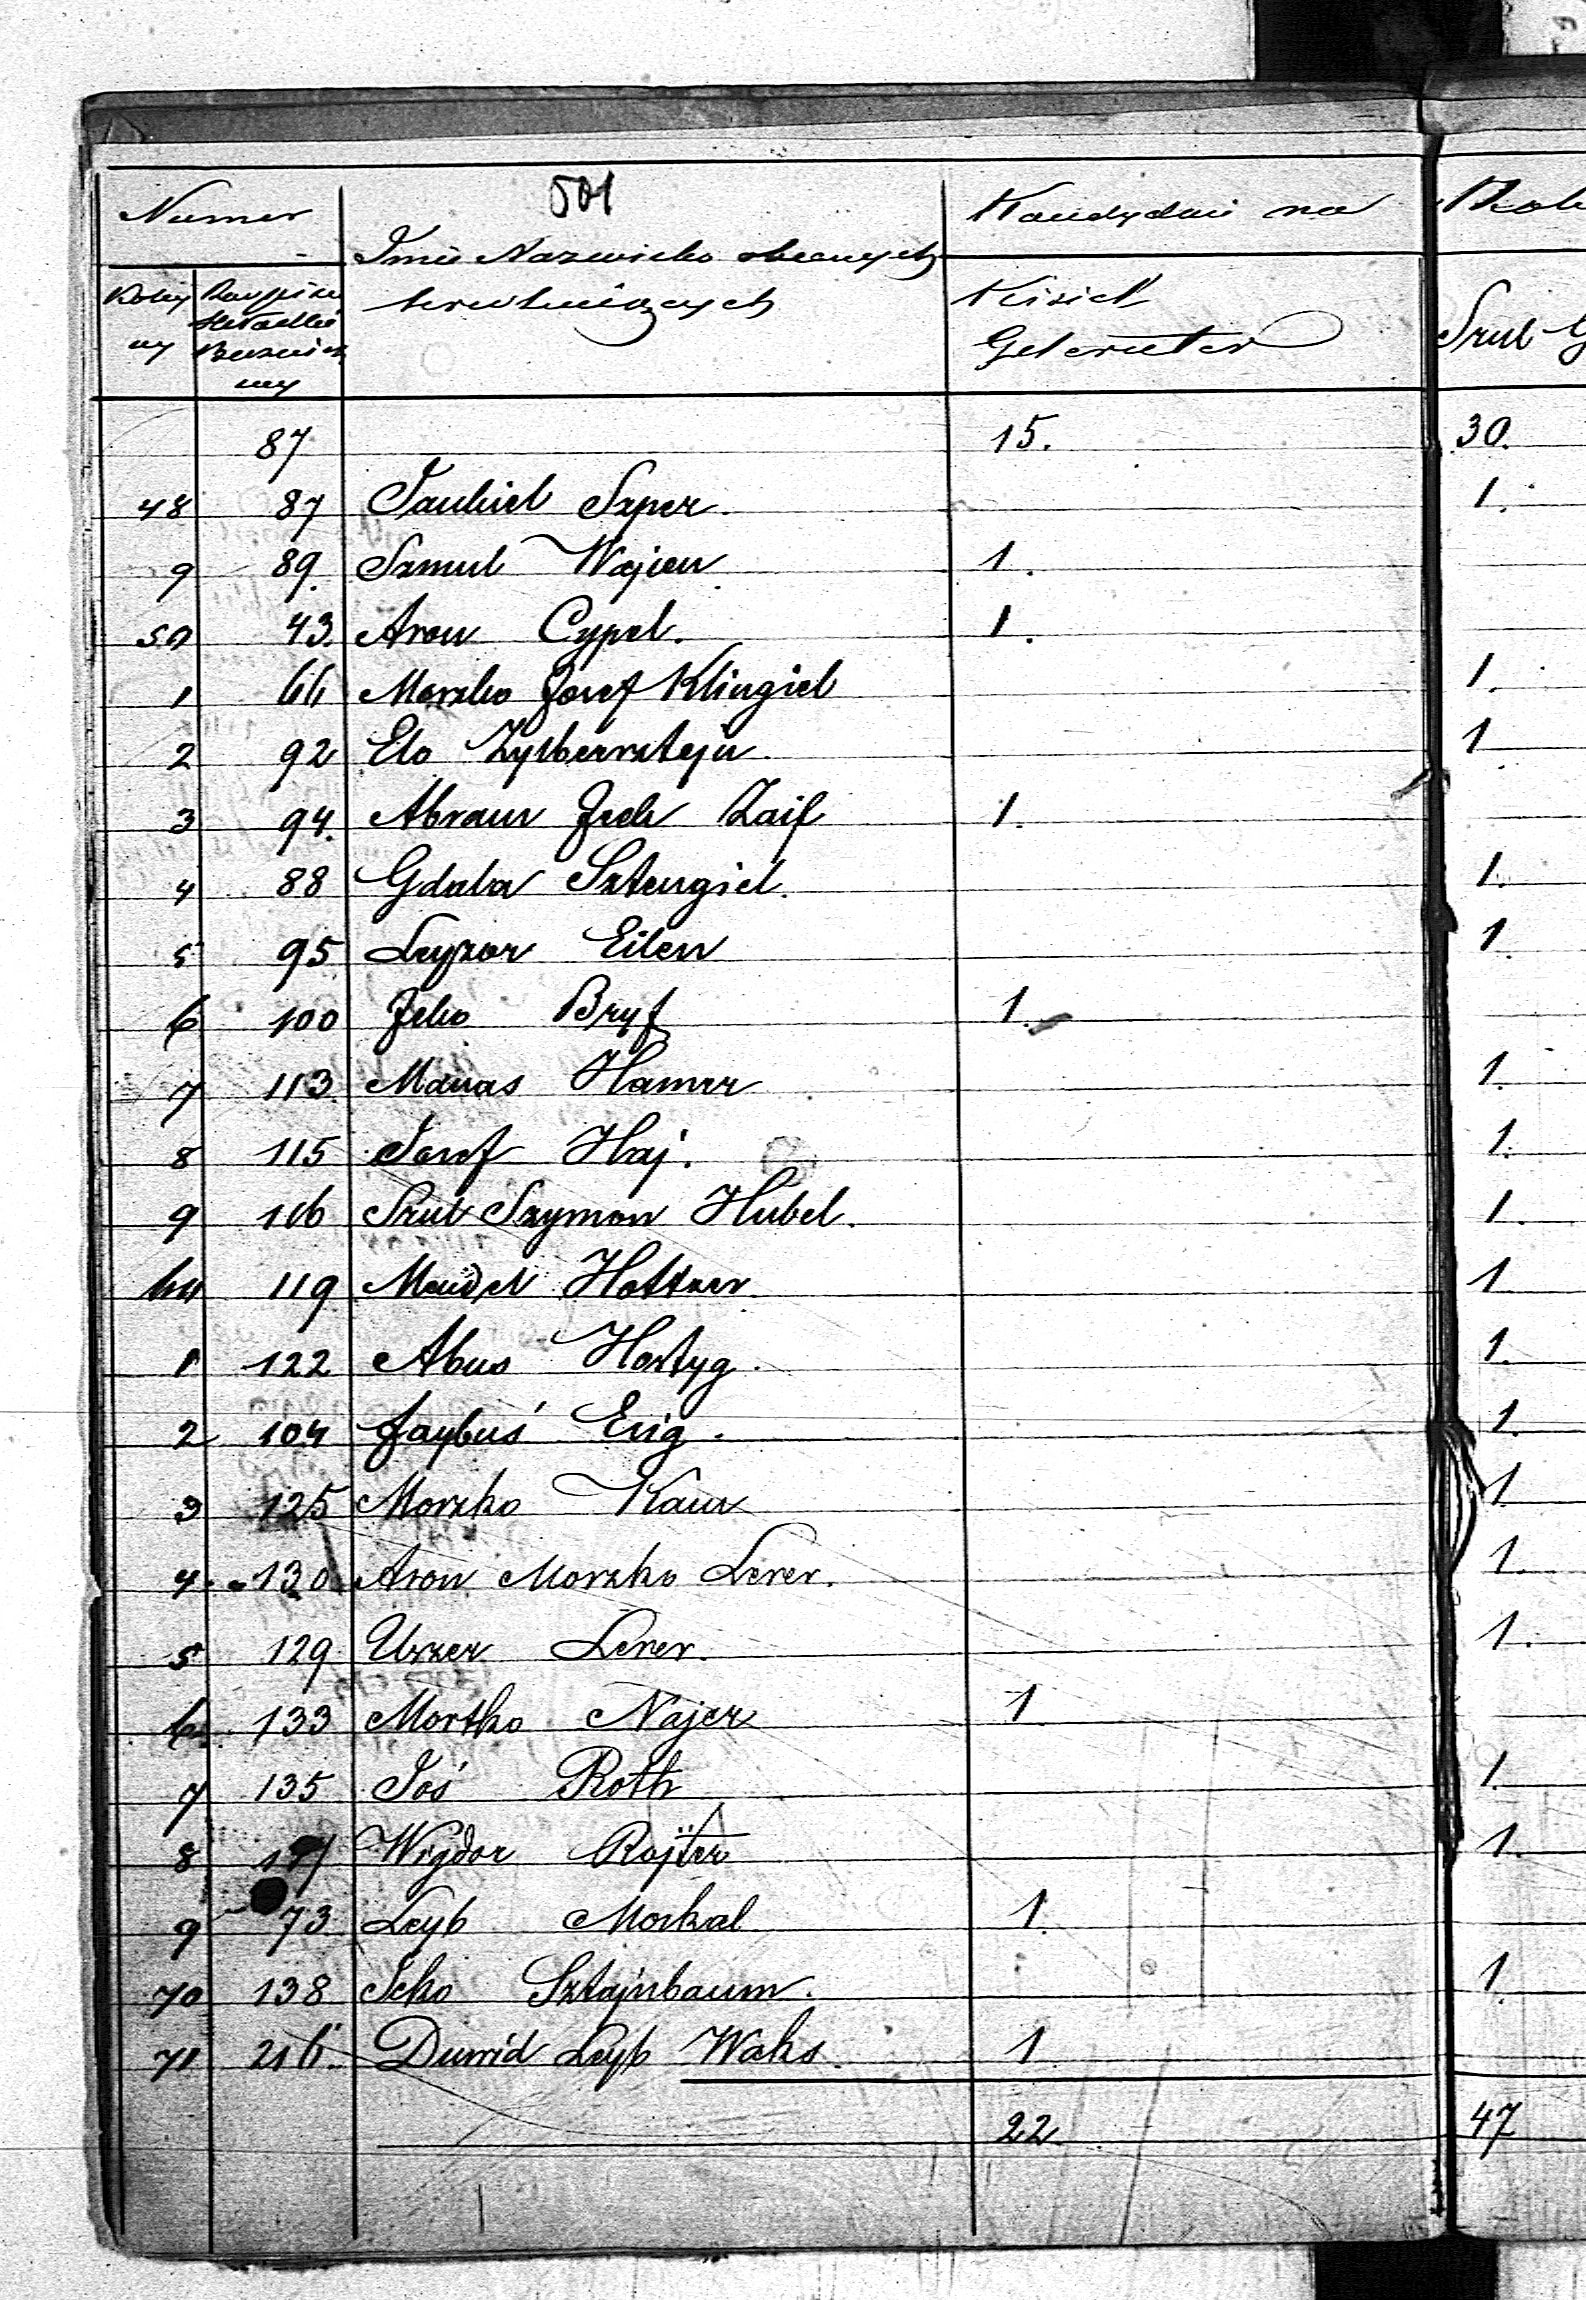 501
Numer
Imie Nazwisko obecnych
Kandydaci na
Koley
ny
Kisiel
Srul G
87 15. 30.
48 87 Jankiel Szper. 1.
9 89. Szmul Wajcen 1.
50 43. Aron Cypel. 1.
1 66 Morzko Josef Klingiel 1.
2 92 Elo Zylbersztejn. 1
3 94. Abram Jcek Zaif 1.
4 88 Gdala Sztengiel. 1.
5 95 Leyzor Eilen 1.
6 100 Jcko Bryf 1.
7 113 Manas Hamer 1.
8 115 Josef Haj. 1.
9 116 Srul Szymon Hubel. 1.
60 119 Mendel Holtzer. 1
1 122 Abus Hortyg. 1.
2 104 Faybuś Erig. 1.
3 125 Morzko Kam 1
4. 130. Aron Morzko Lerer. 1.
5 129 Uszer Lerer. 1.
6. 133 Mortko Najer 1
7 135 Joś Roth 1.
8 Wigdor Rojter 1.
9 73 Leyb 1.
70 138 Jcko Sztajnbaum. 1
71 216. Duwid Leyb Waks. 1
22 47